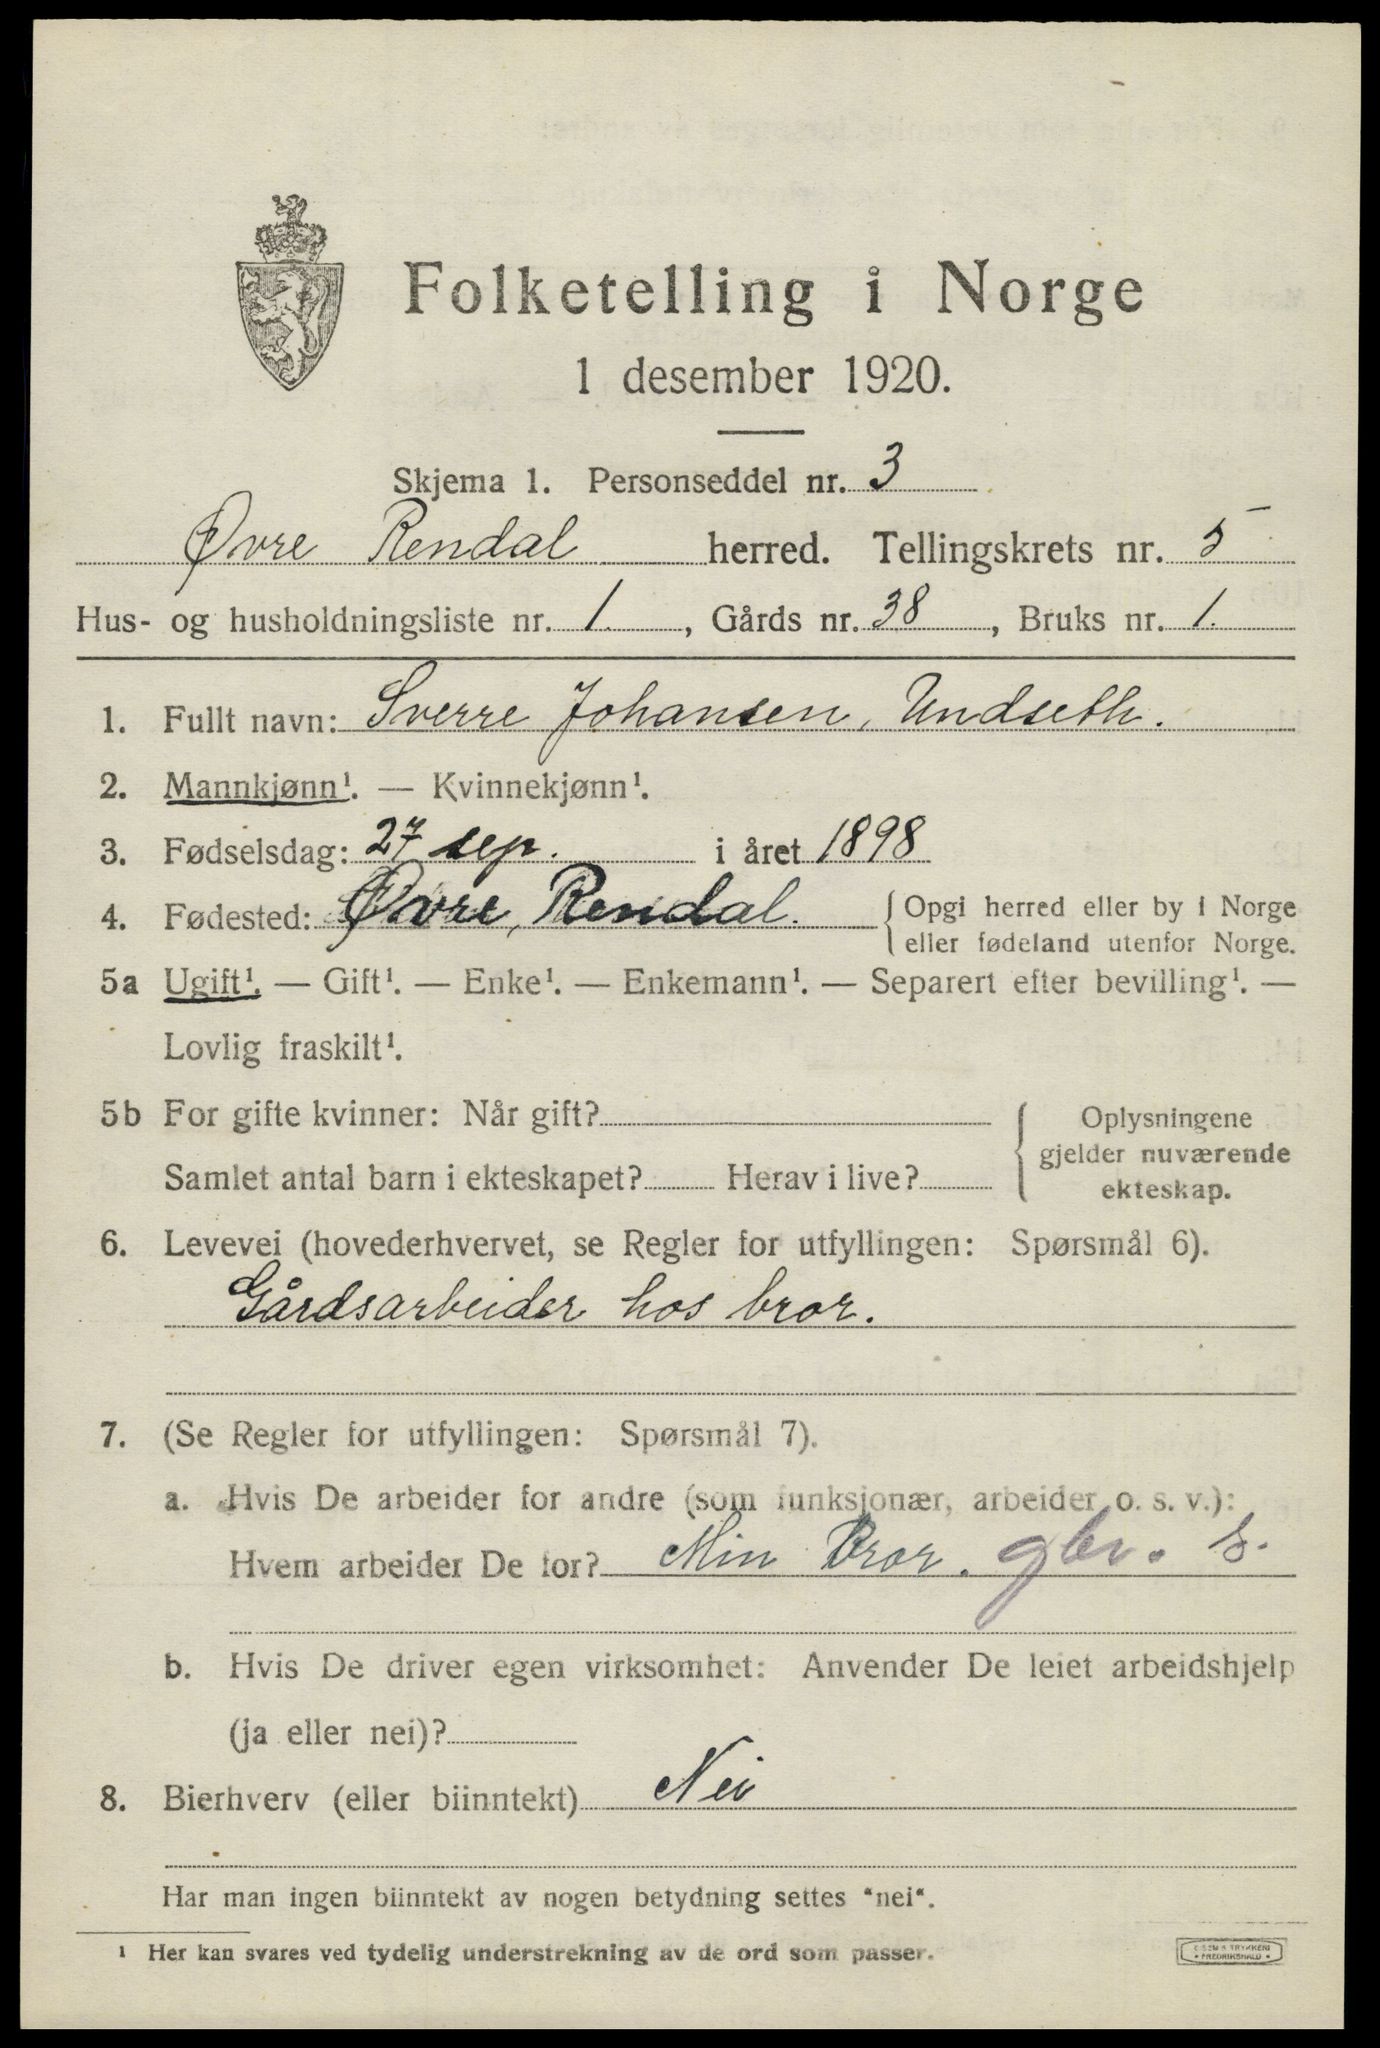 Folketelling i Norge
1 desember 1920.
Skjema 1. Personseddel nr. 3
Øvre Rendal herred. Tellingskrets nr. 5
Hus- og husholdningsliste nr. 1. , Gårds nr. 38 , Bruks nr. 1.
1. Fullt navn: Sverre Johansen, Undseth.
2. Mannkjønn¹. — Kvinnekjønn¹.
3. Fødselsdag: 27 sep. i året 1898
4. Fødested: Øvre, Rendal. { Opgi herred eller by i Norge
eller fødeland utenfor Norge.
5a Ugift¹. — Gift¹. — Enke¹. — Enkemann¹. — Separert efter bevilling¹. —
Lovlig fraskilt¹.
5b For gifte kvinner: Når gift?
Samlet antal barn i ekteskapet? Herav i live?
Oplysningene
gjelder nuværende
ekteskap.
6. Levevei (hovederhvervet, se Regler for utfyllingen: Spørsmål 6).
Gårdsarbeider hos bror.
7. (Se Regler for utfyllingen: Spørsmål 7).
a. Hvis De arbeider for andre (som funksjonær, arbeider o. s. v.):
Hvem arbeider De for? Min Bror. gbr. s.
b. Hvis De driver egen virksomhet: Anvender De leiet arbeidshjelp
(ja eller nei)?
8. Bierhverv (eller biinntekt) Nei
Har man ingen biinntekt av nogen betydning settes "nei".
¹ Her kan svares ved tydelig understrekning av de ord som passer.
TRYKKERI
• FREDRIKSHALD •